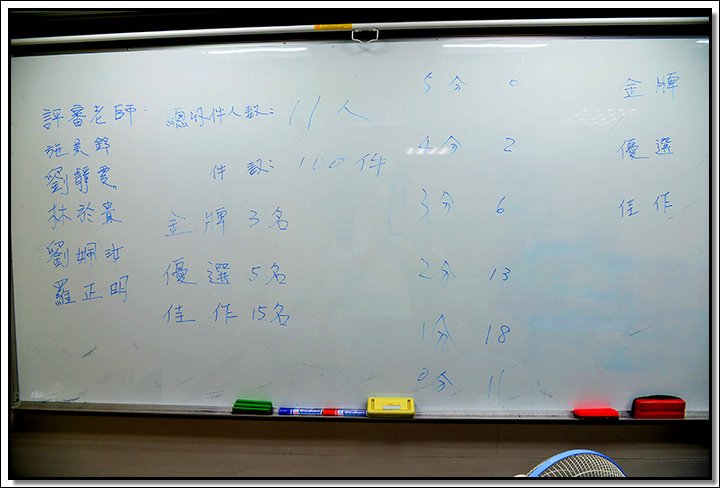 評審老師:
劉靜雯
林於貴
劉嫻汝
羅正明
總收件人數: 11人
件數: 110件
金牌 3名
優選 5名
佳作 15名
5分
4分 2
3分 6
2分 13
1分 18
0分 11
金牌
優選
佳作